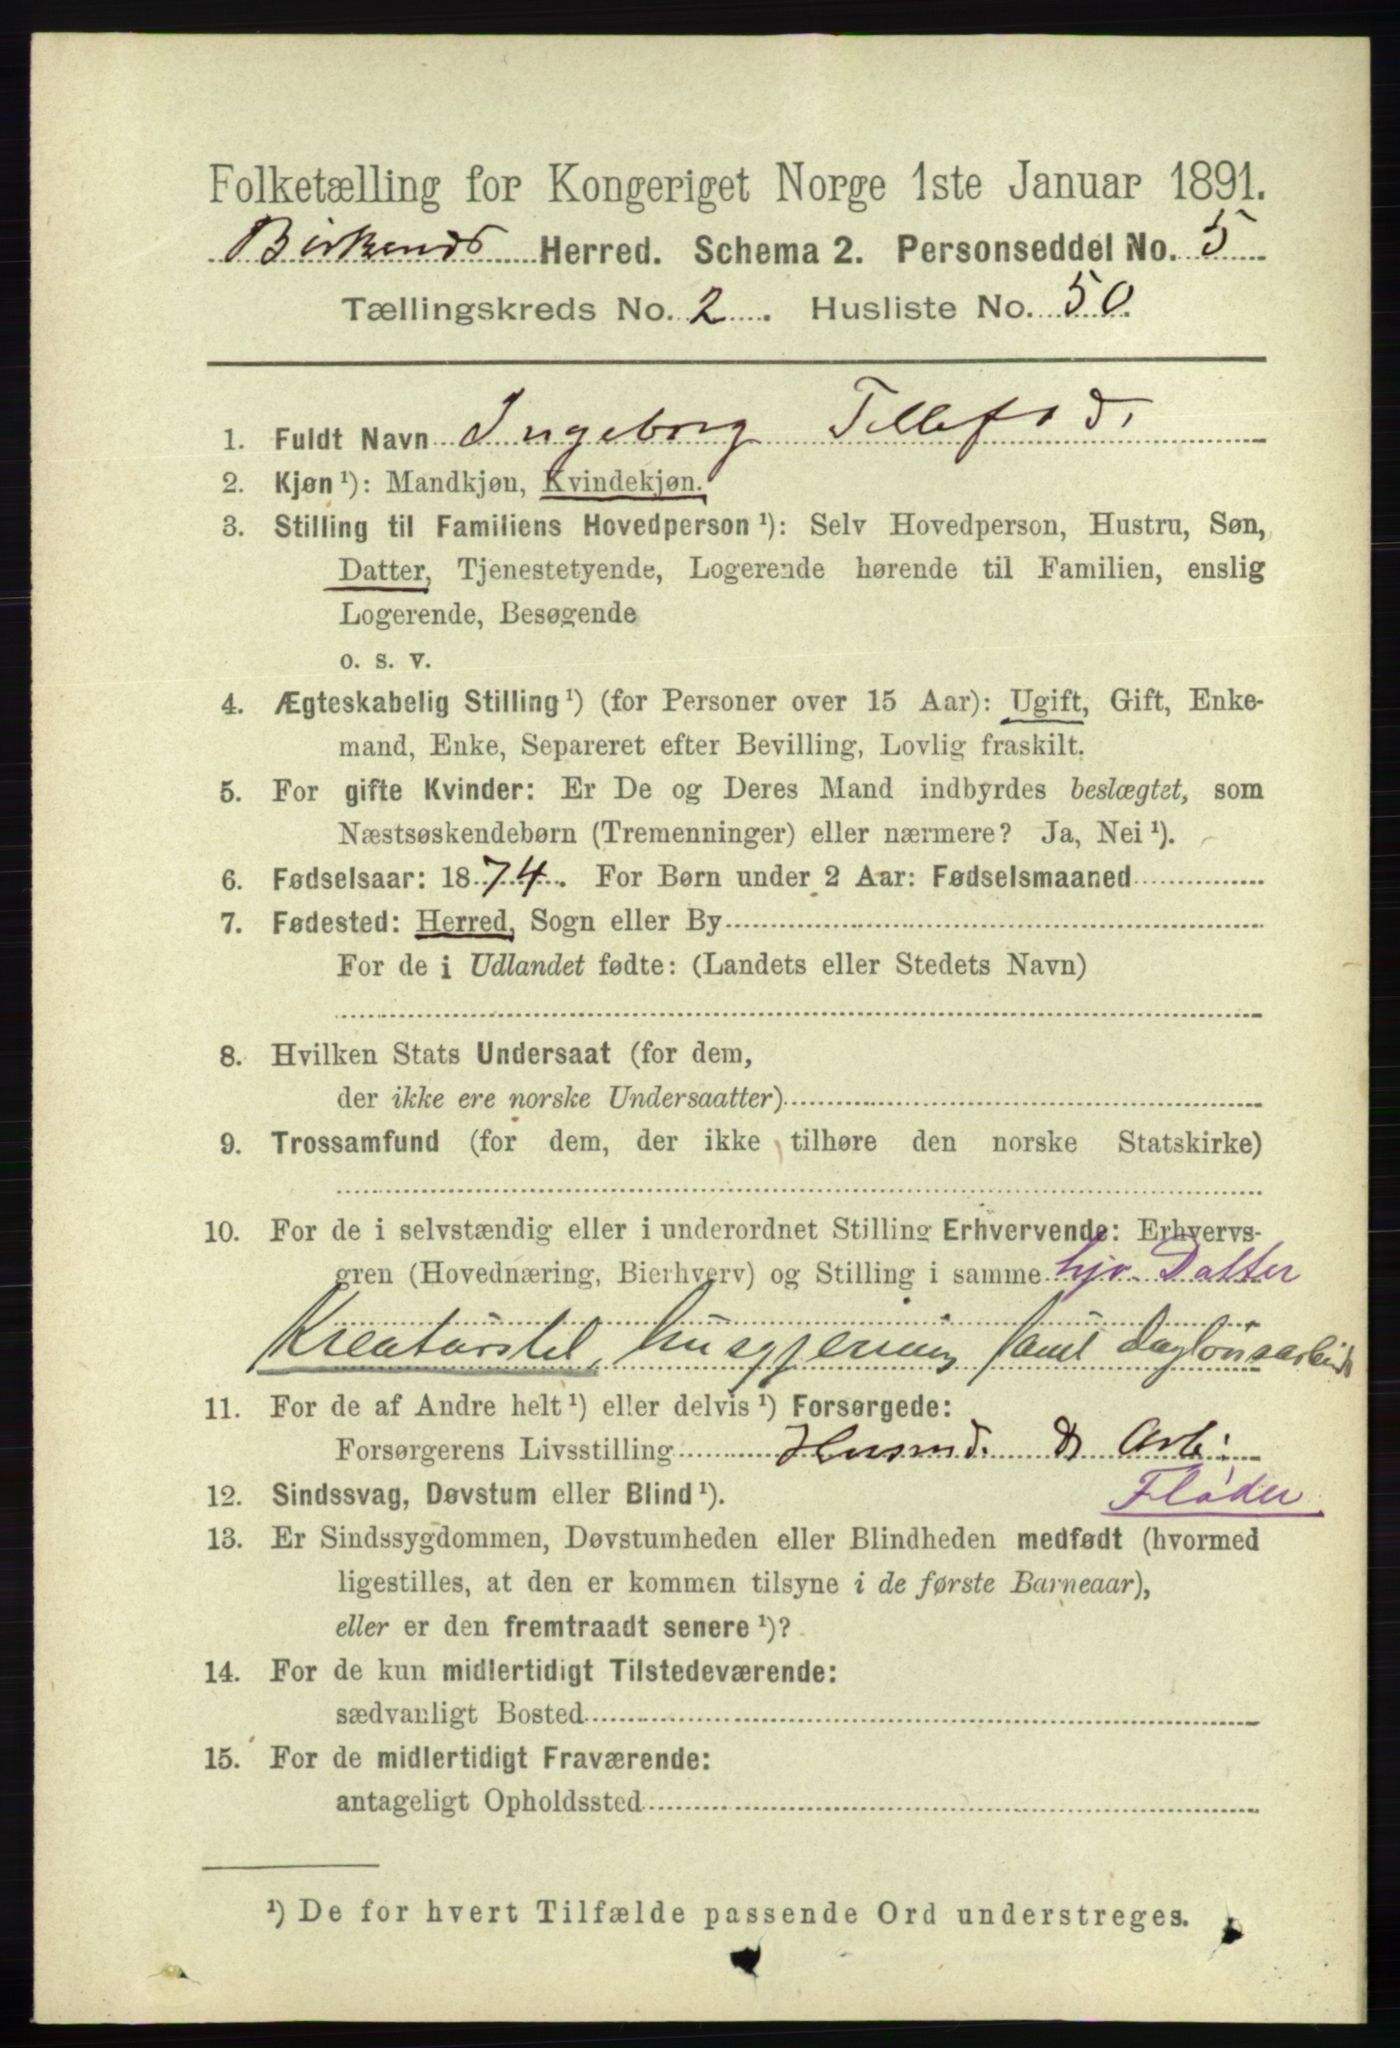 Folketælling for Kongeriget Norge 1ste Januar 1891.
Birkends Herred. Schema 2. Personseddel No. 5
Tællingskreds No. 2. Husliste No. 50.
1. Fuldt Navn Ingeborg Tellefsd.
2. Kjøn ¹): Mandkjøn, Kvindekjøn.
3. Stilling til Familiens Hovedperson ¹): Selv Hovedperson, Hustru, Søn,
Datter, Tjenestetyende, Logerende hørende til Familien, enslig
Logerende, Besøgende
o. s. v.
4. Ægteskabelig Stilling ¹) (for Personer over 15 Aar): Ugift, Gift, Enke-
mand, Enke, Separeret efter Bevilling, Lovlig fraskilt.
5. For gifte Kvinder: Er De og Deres Mand indbyrdes beslægtet, som
Næstsøskendebørn (Tremenninger) eller nærmere? Ja, Nei ¹).
6. Fødselsaar: 1874. For Børn under 2 Aar: Fødselsmaaned
7. Fødested: Herred, Sogn eller By
For de i Udlandet fødte: (Landets eller Stedets Navn)
8. Hvilken Stats Undersaat (for dem,
der ikke ere norske Undersaatter)
9. Trossamfund (for dem, der ikke tilhøre den norske Statskirke)
10. For de i selvstændig eller i underordnet Stilling Erhvervende: Erhvervs-
gren (Hovednæring, Bierhverv) og Stilling i samme hjv. Datter
Kreaturstel, husgjerning samt daglønsarbeide
11. For de af Andre helt ¹) eller delvis ¹) Forsørgede:
Forsørgerens Livsstilling Husmd. & Arb.
12. Sindssvag, Døvstum eller Blind ¹). Fløder
13. Er Sindssygdommen, Døvstumheden eller Blindheden medfødt (hvormed
ligestilles, at den er kommen tilsyne i de første Barneaar),
eller er den fremtraadt senere ¹)?
14. For de kun midlertidigt Tilstedeværende:
sædvanligt Bosted
15. For de midlertidigt Fraværende:
antageligt Opholdssted
¹) De for hvert Tilfælde passende Ord understreges.